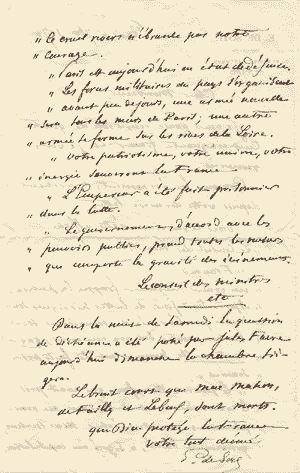 " Ce cruel revers n'ébranle pas notre
" courage.
" Paris est aujourd'hui en état de défense.
" Les forces militaires du pays s'organisent
" avant peu de jours, une armée nouvelle
sera sous les murs de Paris ; une autre
armée se forme sur les rives de la Loire.
" Votre patriotisme, votre union, votre
énergie sauveront la France
" L'Empereur a été fait prisonnier
" dans la lutte.
" Le gouvernement, d'accord avec les
" pouvoirs publics, prend toutes les mesures
" que comporte la gravité des événements.
Le conseil des ministres
etc
Dans la nuit de Samedi la question
de déchéance a été posée par Jules Favre
aujourd'hui dimanche la chambre
Le bruit court que Mac Mahon,
de Failly et Lebeuf, sont morts.
que Dieu protège la France
Votre tout dévoué